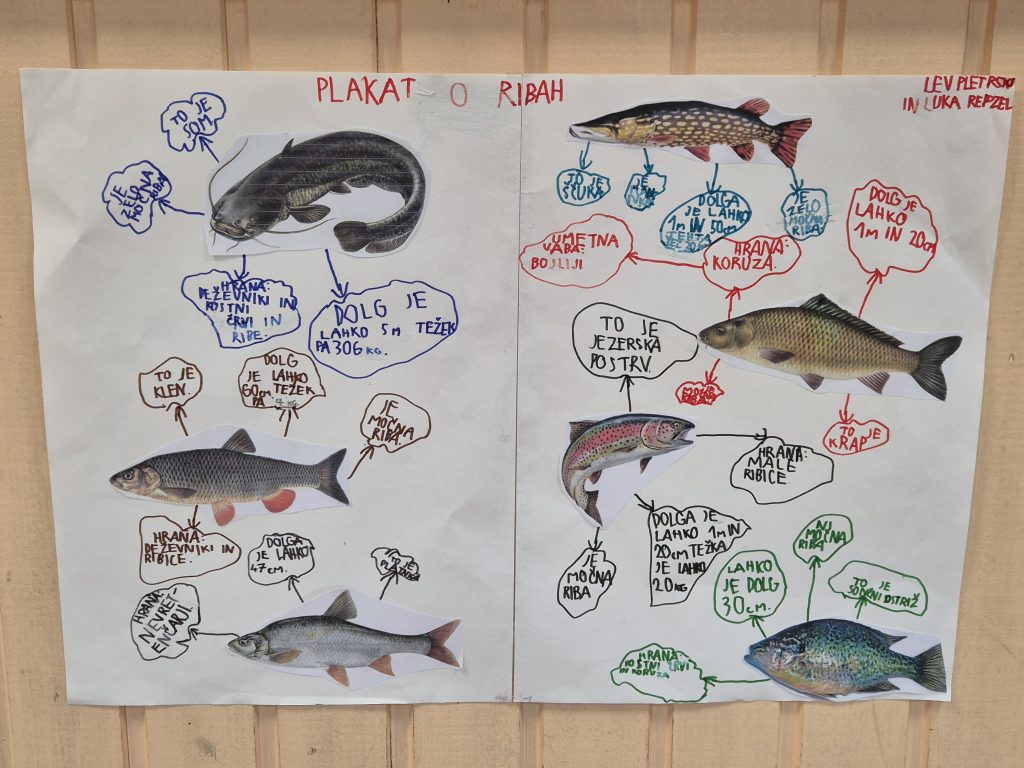 PLAKAT O RIBAH
LEV PLETRSKI
IN LUKA REPZEL
TO JE
SOM
JE
ZELO
MOČNA
RIBA
HRANA:
DEŽEVNIKI IN
KOSTNI
ČRVI IN
RIBE.
DOLG JE
LAHKO 5m TEŽEK
PA 306 KG.
TO JE
ŠČUKA
JE
DOLGA
JE LAHKO
1m IN 50cm
JE
ZELO
MOČNA
RIBA
UMETNA
VABA:
BOJLIJI
HRANA:
KORUZA.
DOLG JE
LAHKO
1m IN 20cm
TO JE
KRAP
TO JE
KLEN.
DOLG
JE LAHKO
60cm TEŽEK
PA 4 KG
JE
MOČNA
RIBA
HRANA:
DEŽEVNIKI IN
RIBICE.
TO JE
JEZERSKA
POSTRV.
HRANA:
MALE
RIBICE.
DOLGA JE
LAHKO 1m IN
20cm TEŽKA
JE LAHKO
20 KG
JE
MOČNA
RIBA
DOLGA
JE LAHKO
47cm.
TO JE
HRANA:
NEVRET-
ENČARJI
NI
MOČNA
RIBA
LAHKO
JE DOLG
30cm.
TO JE
SONČNI OSTRIŽ
HRANA:
KOSTNI ČRVI
IN KORUZA